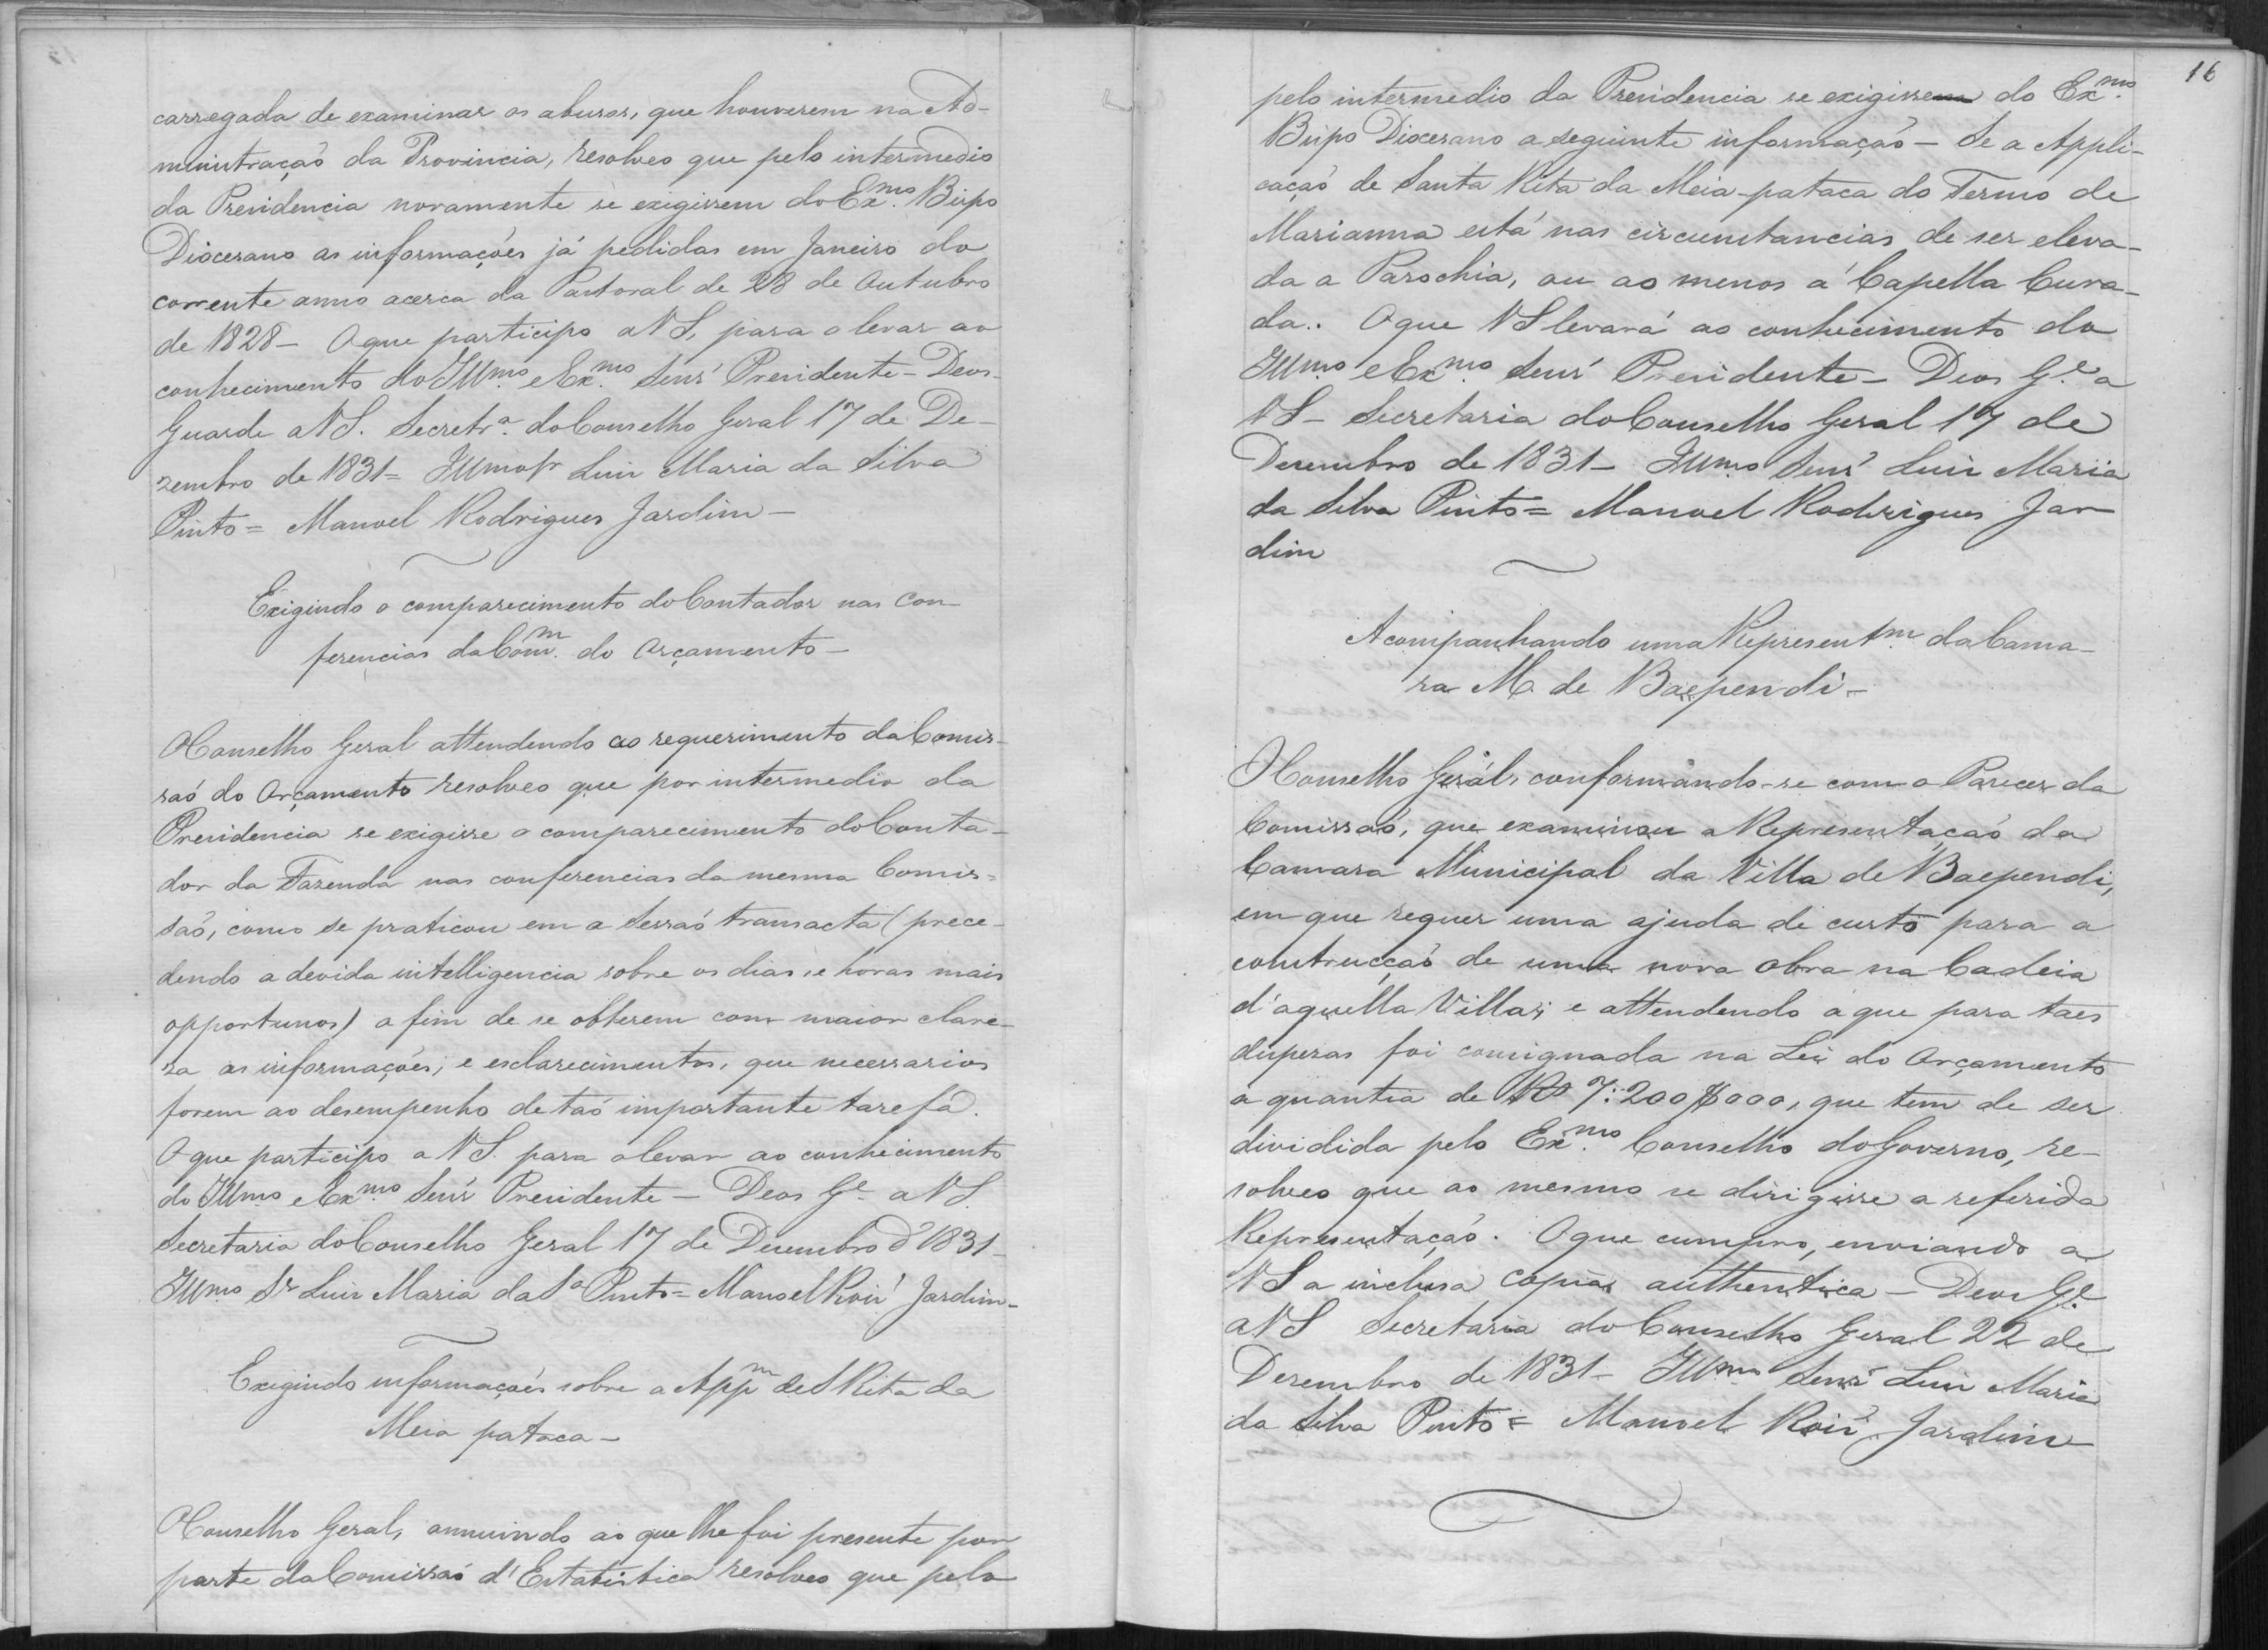 carregada de examinar os abusos, que houverem na Ad-
ministraçaõ da Provincia, resolveo que pelo intermedio
da Presidencia novamente se exigissem do Ex.mo Bispo
Diocesano as informações já pedidas em Janeiro do
corrente anno acerca da Pastoral de 28 de Outubro
de 1828 – O que participo a VS, para o levar ao
conhecimento do Illmo. e Ex.mo Senr' Presidente – Deos
Guarde a VS. Secretr.a do Conselho Geral 17 de De-
zembro de 1831 = Illmo Sr Luis Maria da Silva
Pinto = Manoel Rodrigues Jardim –
Exigindo o comparecimento do Contador nas Con-
ferencias da Com.m do Orçamento –
O Conselho Geral attendendo ao requerimento da Comis-
saõ do Orçamento resolveo que por intermedio da
Presidencia se exigisse o comparecimento do Conta-
dor da Fazenda nas conferencias da mesma Comis=
saõ, como se praticou em a Sessaõ transacta (prece-
dendo a devida intelligencia sobre os dias, e horas mais
opportunos) a fim de se obterem com maior clare-
za as informações, e esclarecimentos, que necessarios
forem ao desempenho de taõ importante tarefa.
O que participo a VS. para o levar ao conhecimento
do Illmo. e Ex.mo Senr' Presidente – Deos G.e a VS.
Secretaria do Conselho Geral 17 de Desembro d'1831 –
Illmo. Sr Luis Maria da S.a Pinto = Manoel Roiz' Jardim –
Exigindo informações sobre a App.m de S Rita da
Meia pataca –
O Conselho Geral, annuindo ao que lhe foi presente por
parte da Comissaõ d'Estatistica resolveo que pelo
16
pelo intermedio da Presidencia se exigisse do Ex.mo
Bispo Diocesano a seguinte informaçaõ – Se a Appli-
caçaõ de Santa Rita da Meia-pataca do Termo de
Marianna está nas circumstancias de ser eleva-
da a Parochia, ou ao menos á Capella Cura-
da. O que VS levará ao conhecimento do
Illmo. e Ex.mo Senr' Presidente – Deos G.e a
VS – Secretaria do Conselho Geral 17 de
Desembro de 1831 – Illmo. Senr' Luis Maria
da Silva Pinto = Manoel Rodrigues Jar
dim
Acompanhando uma Represent.m da Cama-
ra M. de Baependi –
O Conselho Geral, conformando-se com o Parecer da
Comissaõ, que examinou a Representaçaõ da
Camara Municipal da Villa de Baependi,
em que requer uma ajuda de custo para a
construcçaõ de uma nova obra na Cadeia
d'aquella Villa; e attendendo a que para taes
despesas foi consignada na Lei do Orçamento
a quantia de Rs 7:200$000, que tem de ser
dividida pelo Ex.mo Conselho do Governo, re-
solveo que ao mesmo se dirigisse a referida
Representaçaõ. O que cumpro, enviando a
VS a inclusa copia authentica – Deos G.e
a VS Secretaria do Conselho Geral 22 de
Dezembro de 1831 – Illmo. Senr' Luis Maria
da Silva Pinto = Manoel Roiz' Jardim